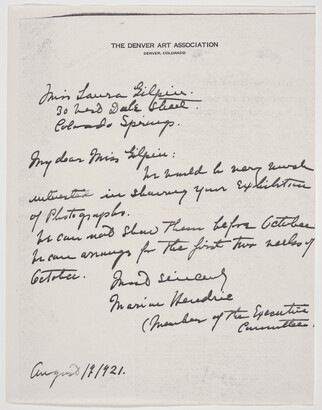 THE DENVER ART ASSOCIATION
DENVER, COLORADO
Miss Laura Gilpin.
30 West Dale Street.
Colorado Springs.
My dear Miss Gilpin:
We would be very much
interested in showing your Exhibition
of Photographs.
We can not show them before October
We can arrange for the first two weeks of
October.
Most sincerely
Marion Hendrie
(Member of the Executive
Committee.
August 1921.